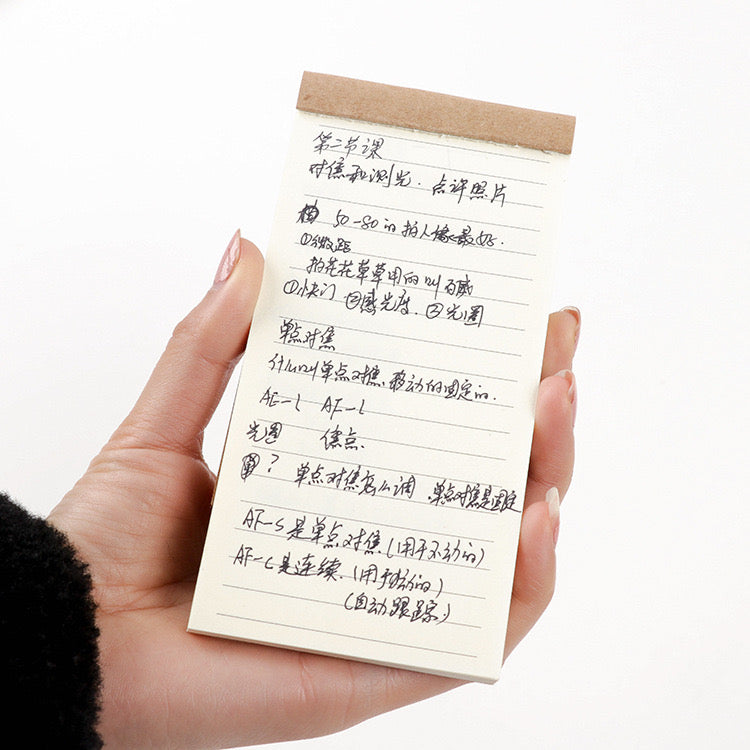 第二节课
对焦和测光.点评照片
50-80的拍人像最好.
①微距
拍花花草草用的叫百威
①快门 ②感光度.③光圈
单点对焦
什么叫单点对焦.移动的固定的.
AE-L AF-L
光圈 焦点
? 单点对焦怎么调 单点对焦是固定
AF-S是单点对焦(用于不动的)
AF-C是连续.(用于动的)
(自动跟踪.)